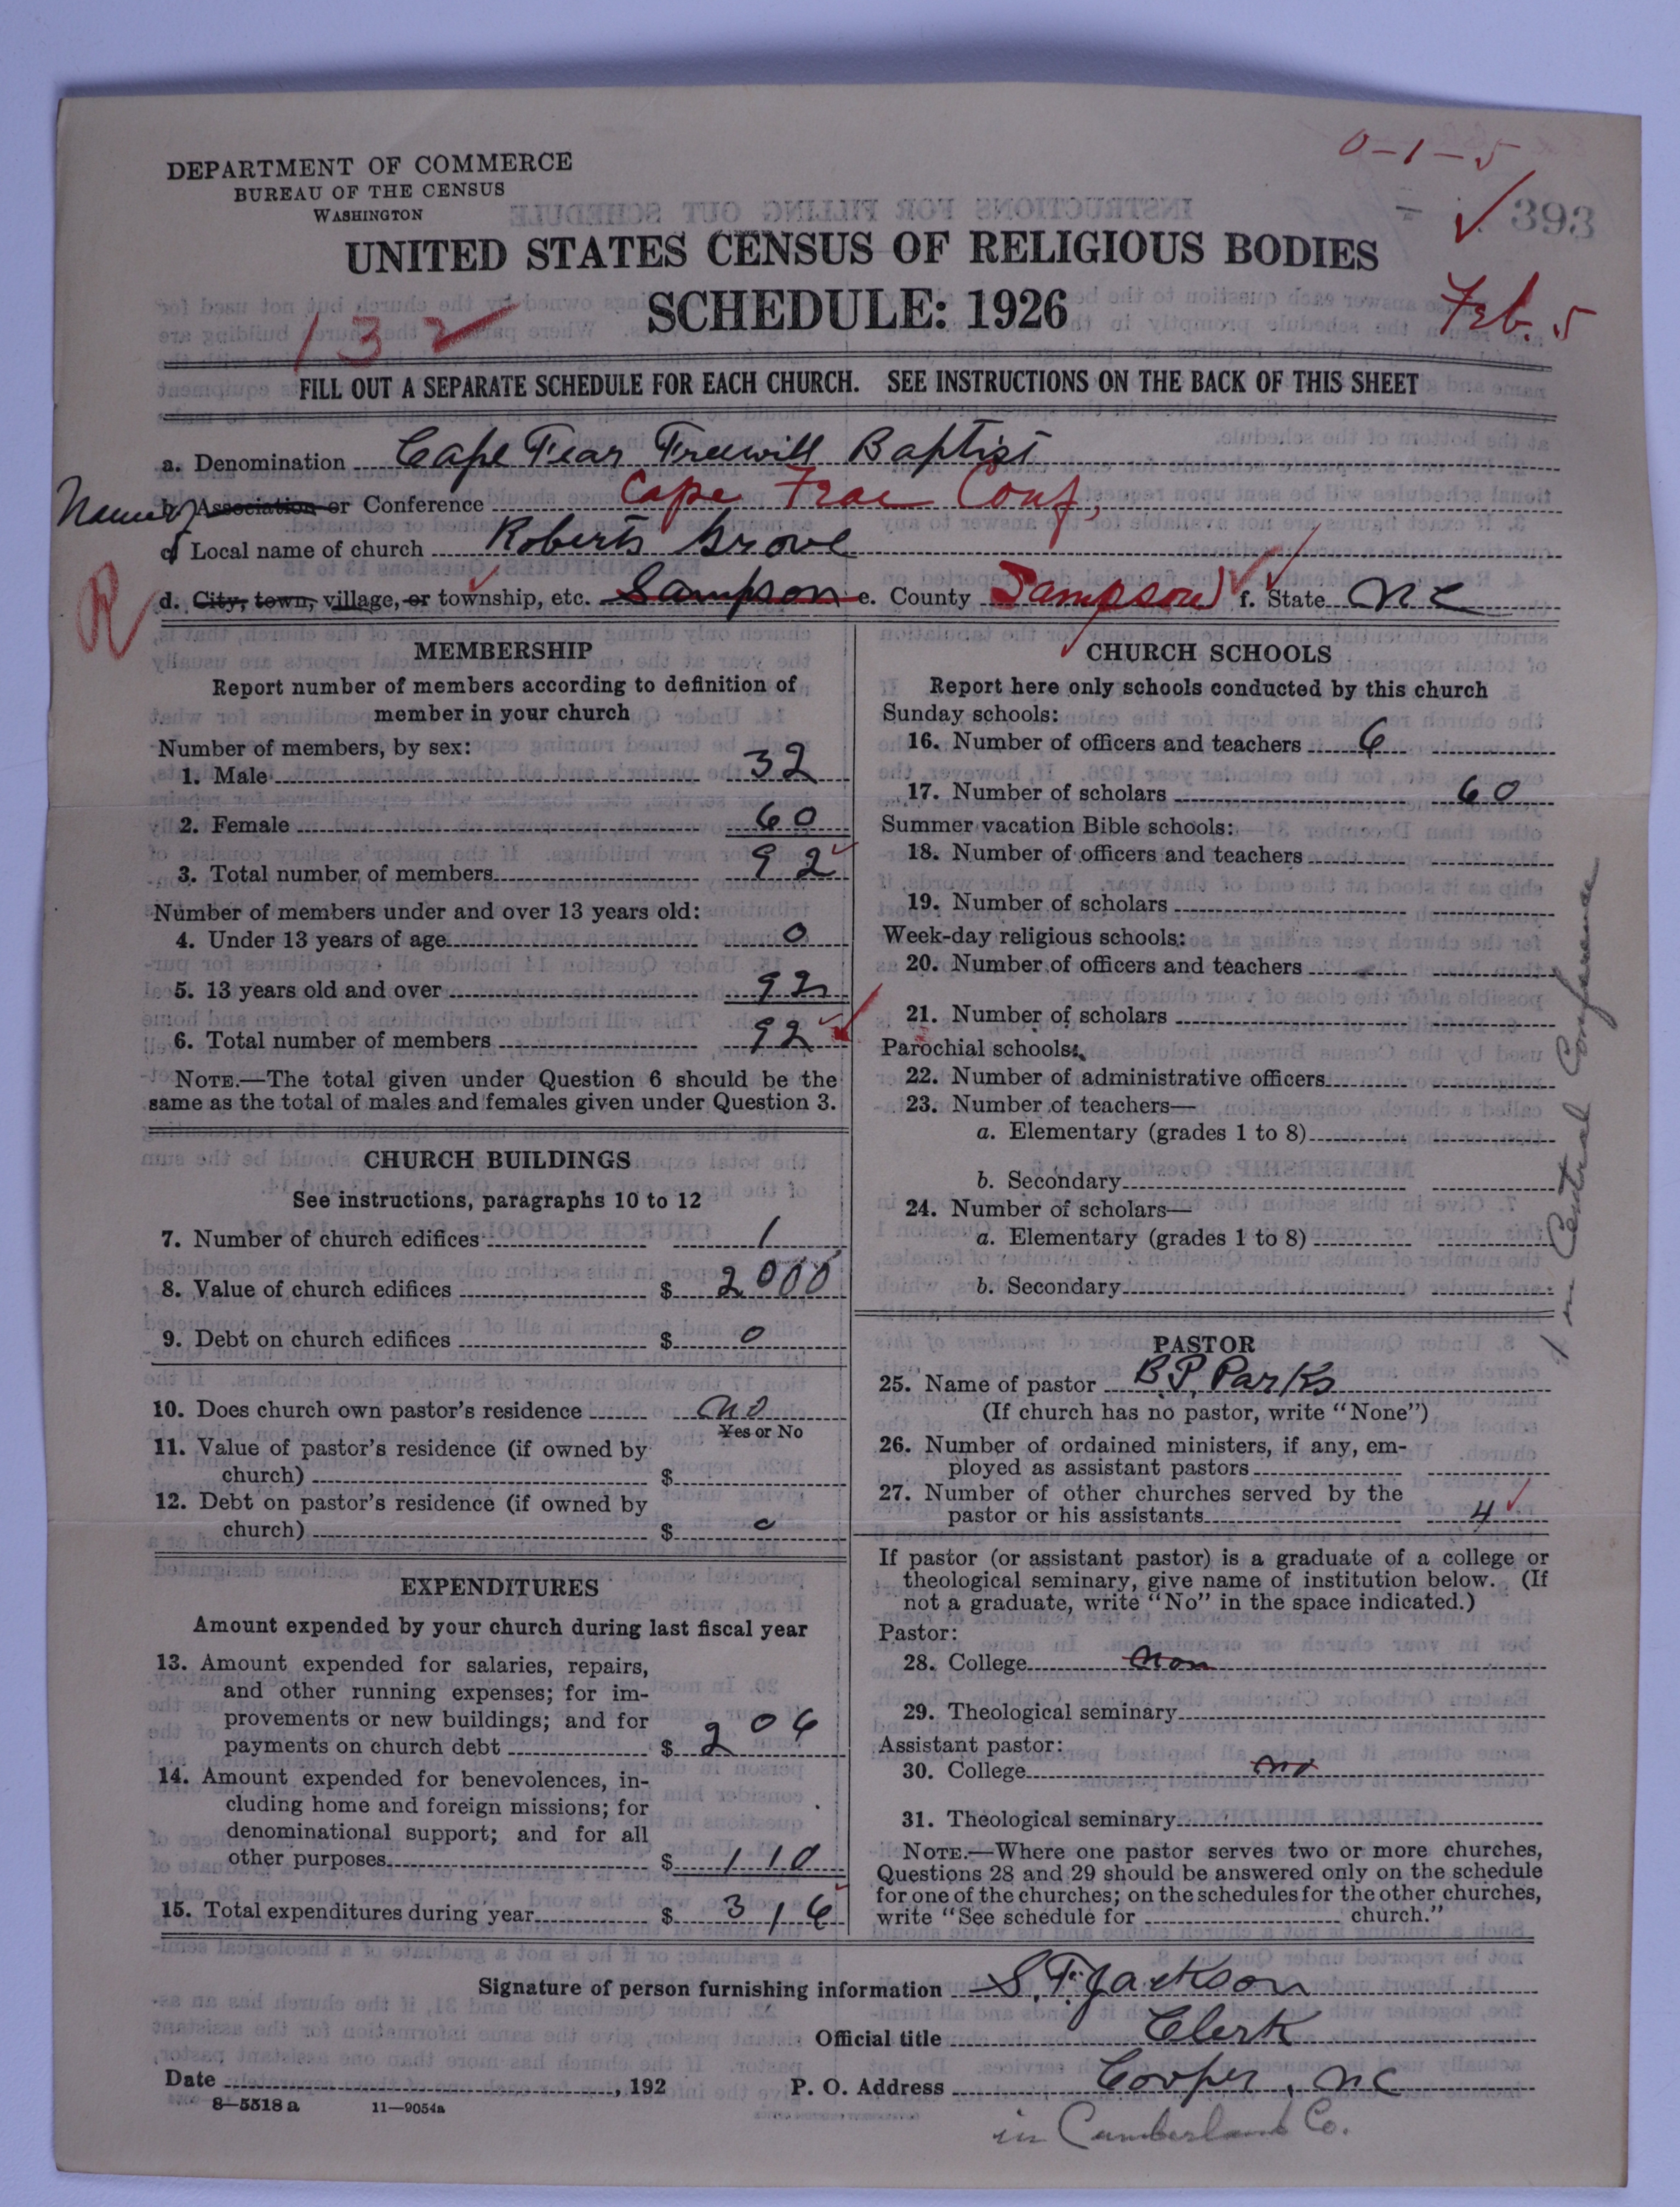 0-1-5
DEPARTMENT OF COMMERCE
BUREAU OF THE CENSUS
WASHINGTON
393
UNITED STATES CENSUS OF RELIGIOUS BODIES
Feb. 5
SCHEDULE: 1926
132
FILL OUT A SEPARATE SCHEDULE FOR EACH CHURCH. SEE INSTRUCTIONS ON THE BACK OF THIS SHEET
a. Denomination Cape Fear Freewill Baptist
Name of
b. Association or Conference Cape Frae Conf,
c. Local name of church Roberts Grove
R
d. City, town, village, or township, etc. Sampson e. County Sampson f. State NC
MEMBERSHIP
Report number of members according to definition of
member in your church
Number of members, by sex:
1. Male 32
2. Female 60
3. Total number of members 92
Number of members under and over 13 years old:
4. Under 13 years of age 0
5. 13 years old and over 92
6. Total number of members 92
NOTE.—The total given under Question 6 should be the
same as the total of males and females given under Question 3.
CHURCH BUILDINGS
See instructions, paragraphs 10 to 12
7. Number of church edifices 1
8. Value of church edifices $ 2000
9. Debt on church edifices $ 0
10. Does church own pastor's residence no
Yes or No
11. Value of pastor's residence (if owned by
church) $
12. Debt on pastor's residence (if owned by
church) $ 0
EXPENDITURES
Amount expended by your church during last fiscal year
13. Amount expended for salaries, repairs,
and other running expenses; for im-
provements or new buildings; and for
payments on church debt $ 206
14. Amount expended for benevolences, in-
cluding home and foreign missions; for
denominational support; and for all
other purposes $ 110
15. Total expenditures during year $ 316
CHURCH SCHOOLS
Report here only schools conducted by this church
Sunday schools:
16. Number of officers and teachers 6
17. Number of scholars 60
Summer vacation Bible schools:
18. Number of officers and teachers
19. Number of scholars
Week-day religious schools:
20. Number of officers and teachers
21. Number of scholars
Parochial schools:
22. Number of administrative officers
23. Number of teachers—
a. Elementary (grades 1 to 8)
b. Secondary
24. Number of scholars—
a. Elementary (grades 1 to 8)
b. Secondary
1 in Central Conference
PASTOR
25. Name of pastor B. P. Parks
(If church has no pastor, write "None")
26. Number of ordained ministers, if any, em-
ployed as assistant pastors
27. Number of other churches served by the
pastor or his assistants 4
If pastor (or assistant pastor) is a graduate of a college or
theological seminary, give name of institution below. (If
not a graduate, write "No" in the space indicated.)
Pastor:
28. College non
29. Theological seminary
Assistant pastor:
30. College no
31. Theological seminary
NOTE.—Where one pastor serves two or more churches,
Questions 28 and 29 should be answered only on the schedule
for one of the churches; on the schedules for the other churches,
write "See schedule for church."
Signature of person furnishing information S. F. Jackson
Official title Clerk
Date , 192 P. O. Address Cooper, NC
8-5518 a 11-9054a
in Cumberland Co.